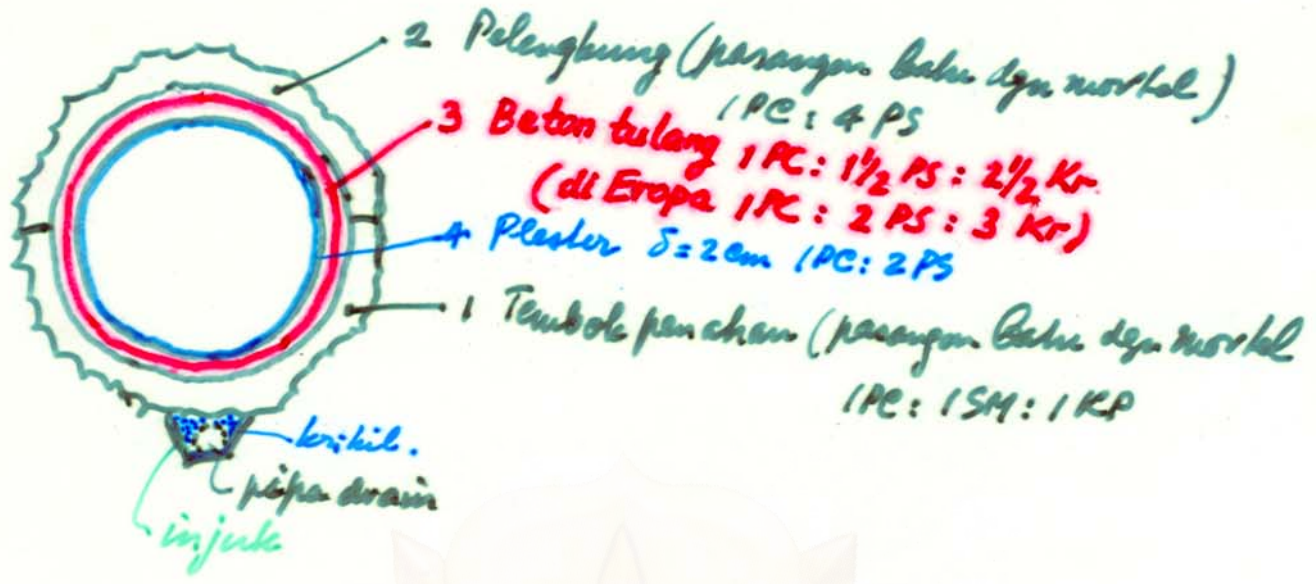 2 Pelengkung (pasangan batu dgn mortel)
1 PC : 4 PS
3 Beton tulang 1 PC : 1½ PS : 2½ Kr.
(di Eropa 1 PC : 2 PS : 3 Kr)
4 Plester δ = 2 cm 1 PC : 2 PS
1 Tembok penahan (pasangan batu dgn mortel
1 PC : 1 SM : 1 KP
krikil.
pipa drain
injuk